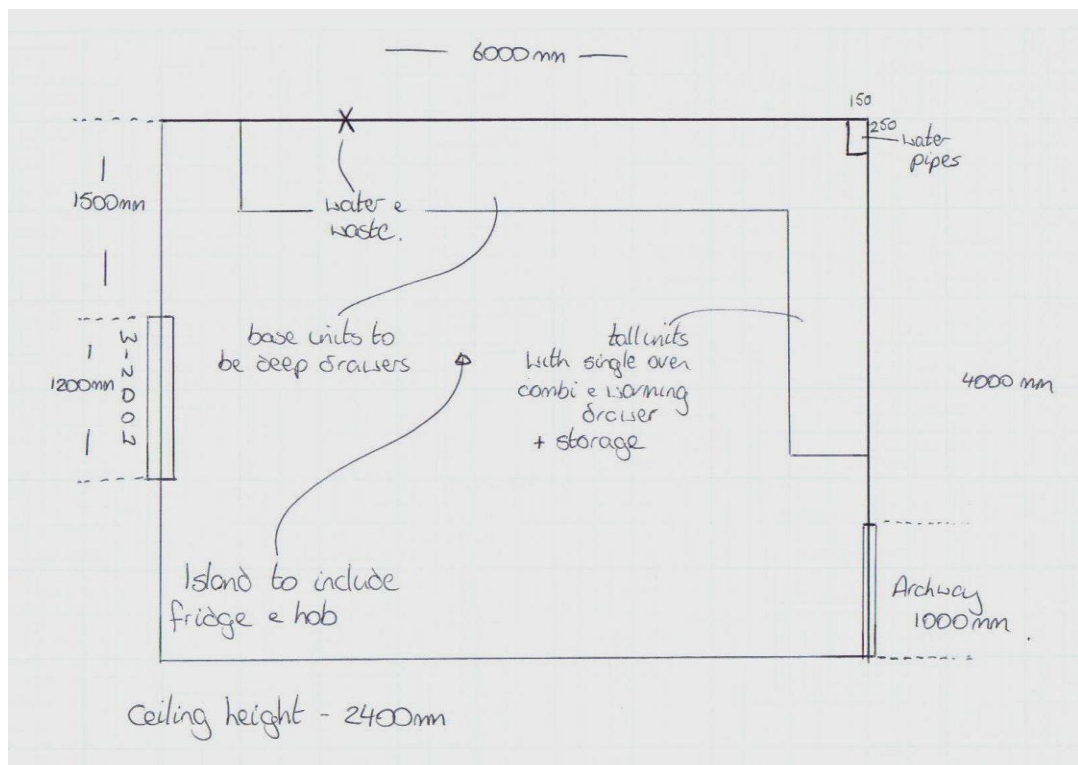 6000mm
150
250
water
pipes
1500mm
water e
waste.
base units to
be deep drawers
tall units
with single oven
combi e warming
drawer
+ storage
WINDOW
1200mm
4000mm
Island to include
fridge e hob
Archway
1000mm.
Ceiling height - 2400mm